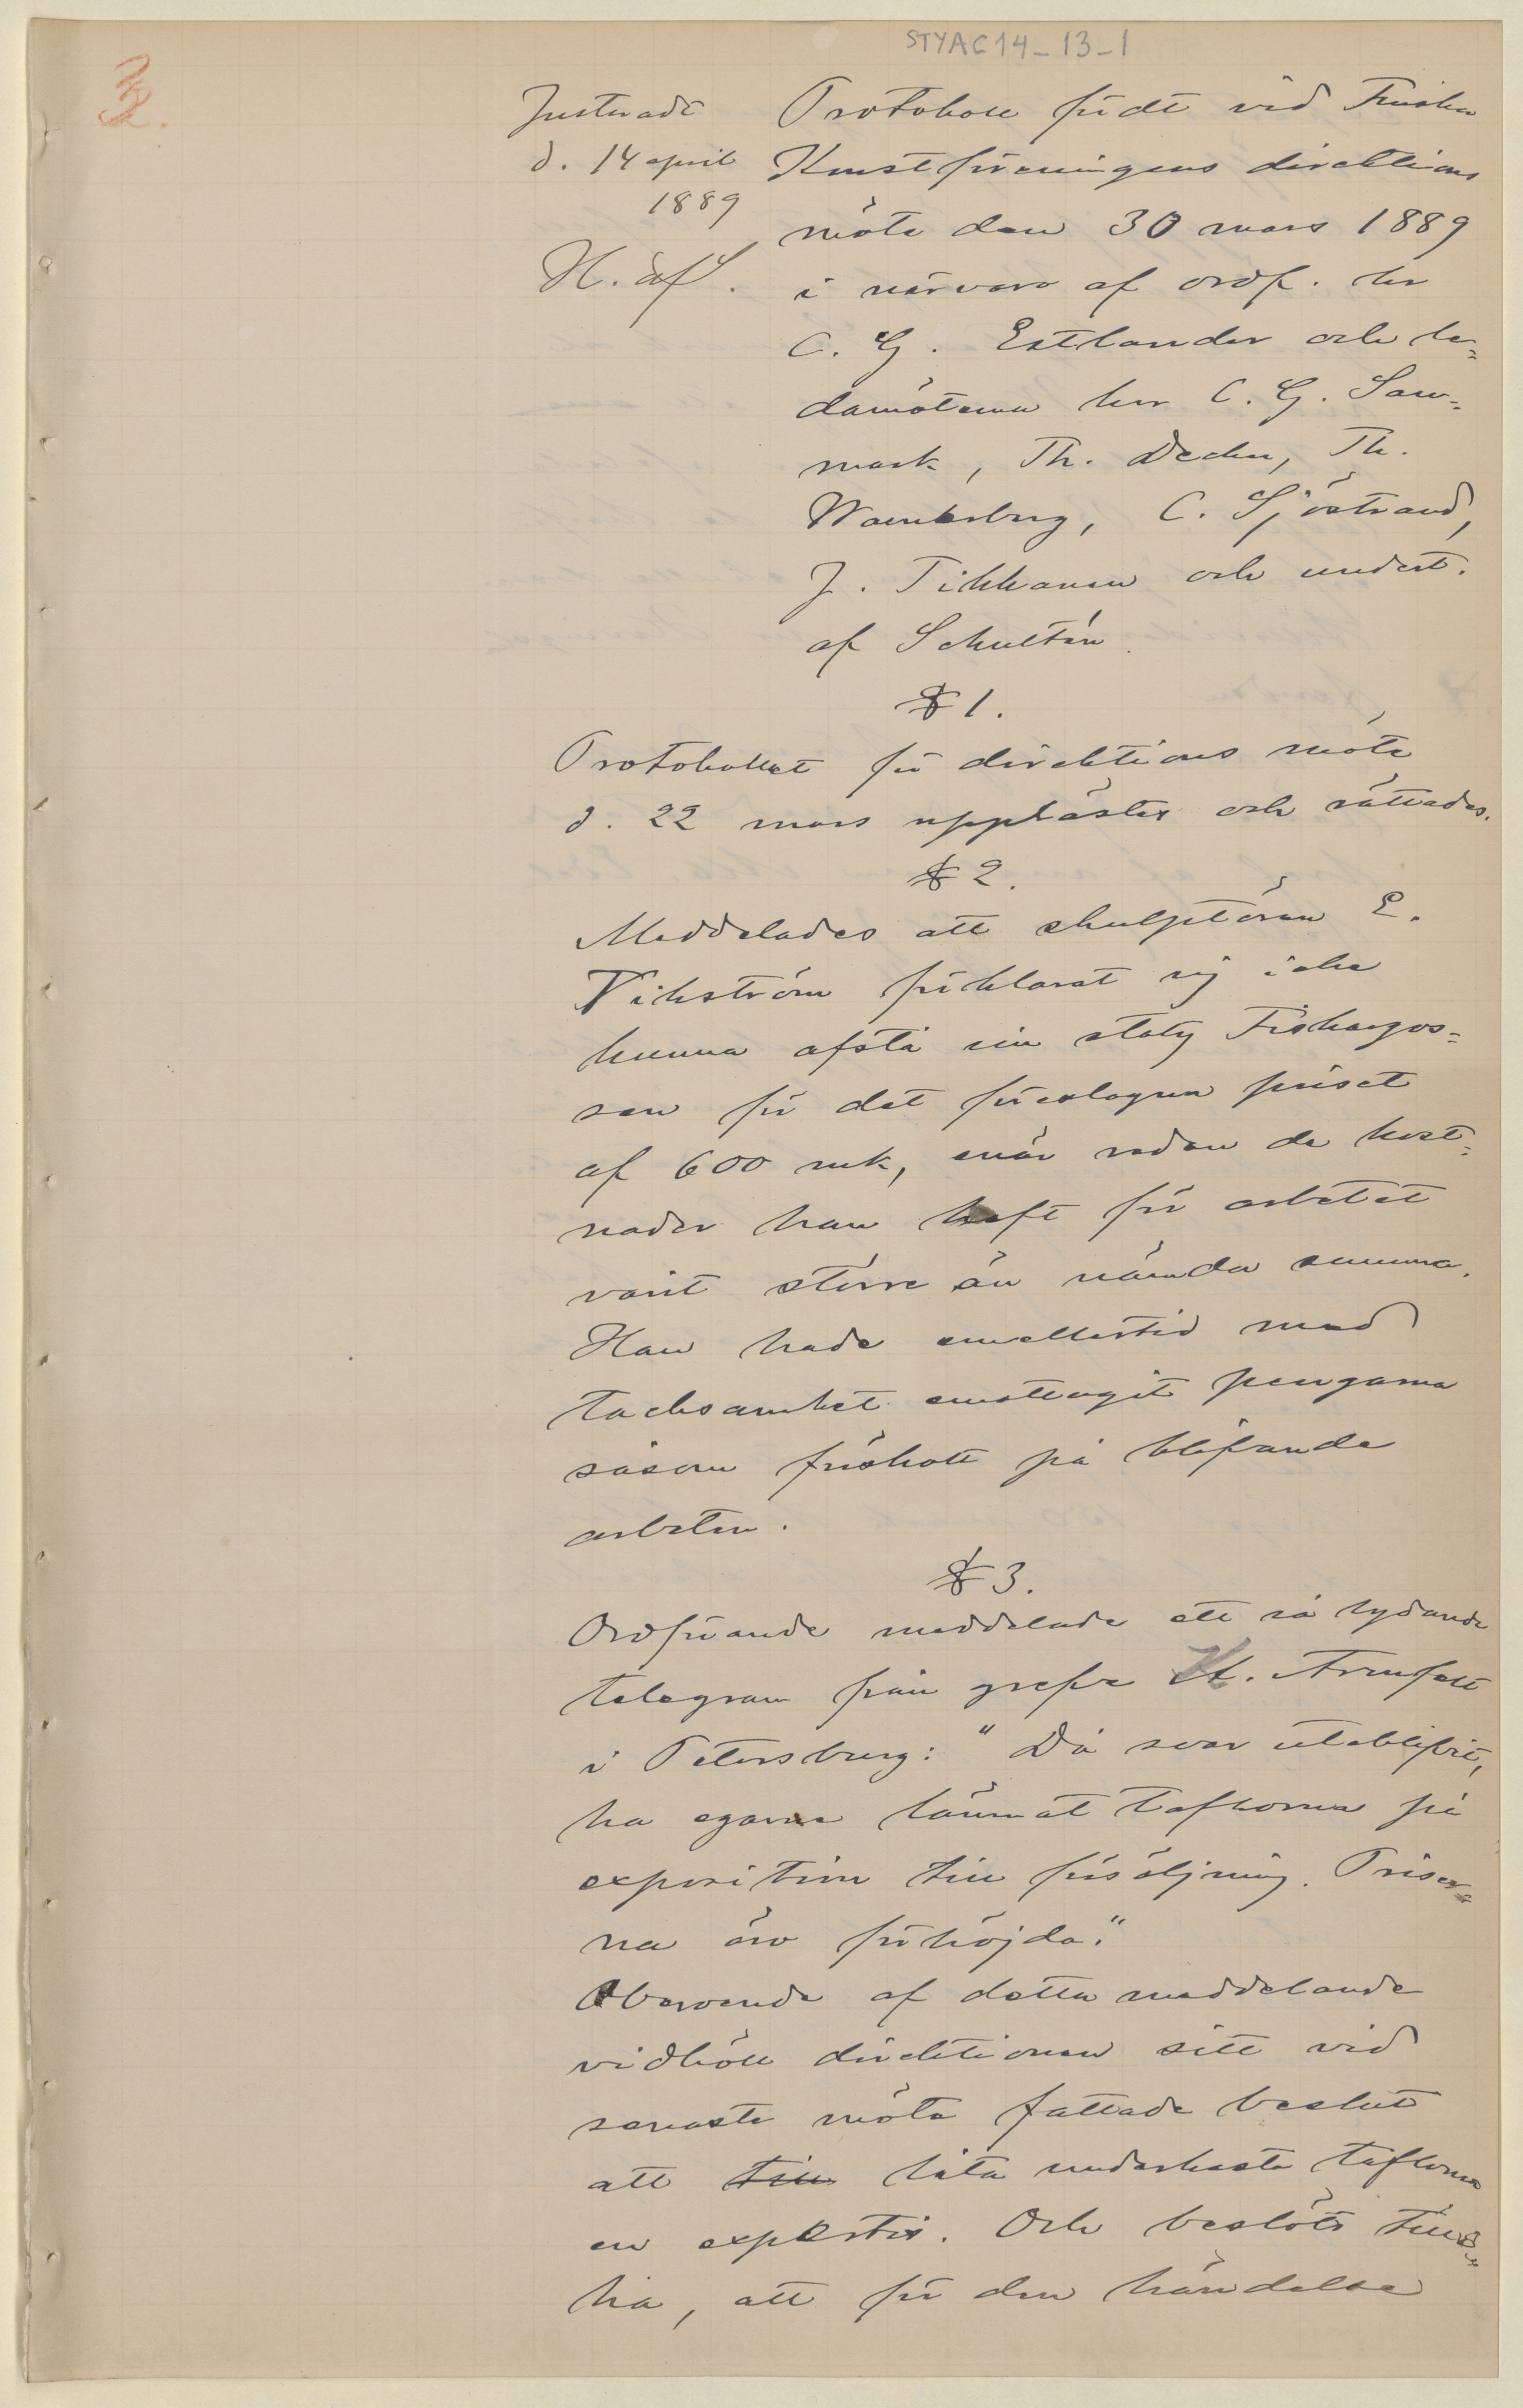 STYAC14-13-1
3.
Justerade
d. 14 april
1889
H. af S.
Protokoll fördt vid Finska
Konstföreningens direktions
möte den 30 mars 1889
i närvaro af ordf. hr
C. G. Estlander och le=
damöterna hrr C. G. San=
mark, Th. Decker, Th.
Waenerberg, C. Sjöstrand,
J. Tikkanen och undert.
af Schultén.
§ 1.
Protokollet för direktions möte
d. 22 mars upplästes och rättades.
§ 2.
Meddelades att skulptören E.
Vikström förklarat sig icke
kunna afstå sin staty Fiskargos=
sen för det föreslagna priset
af 600 mk, enär redan de kost=
nader han haft för arbetet
varit större än nämda summa.
Han hade emellertid med
tacksamhet emottagit pengarna
såsom förskott på blifvande
arbeten.
§ 3.
Ordförande meddelade ett så lydande
telegram från grefve A. Armfelt
i Petersburg: "Då svar uteblifvit,
ha egarne lämnat taflorna på
exposition till försäljning. Priser=
na äro förhöjda."
Oberoende af detta meddelande
vidhöll direktionen sitt vid
senaste möte fattade beslut
att till låta underkasta taflorna
en expertis. Och beslöts till=
lika, att för den händelse